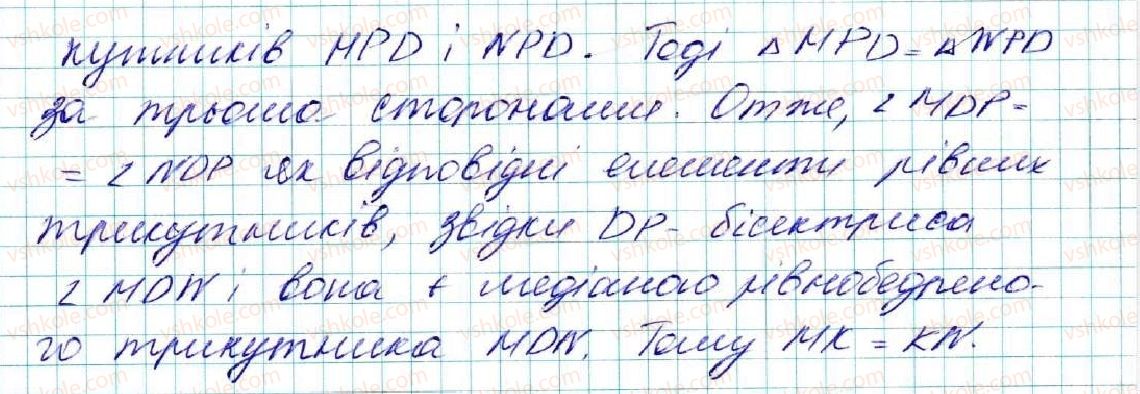 кутників MPD і NPD. Тоді △MPD=△NPD
за трьома сторонами. Отже, ∠MDP=
=∠NDP як відповідні елементи рівних
трикутників, звідки DP- бісектриса
∠MDN і вона є медіаною рівнобедрено-
го трикутника MDN. Тому MK = KN.